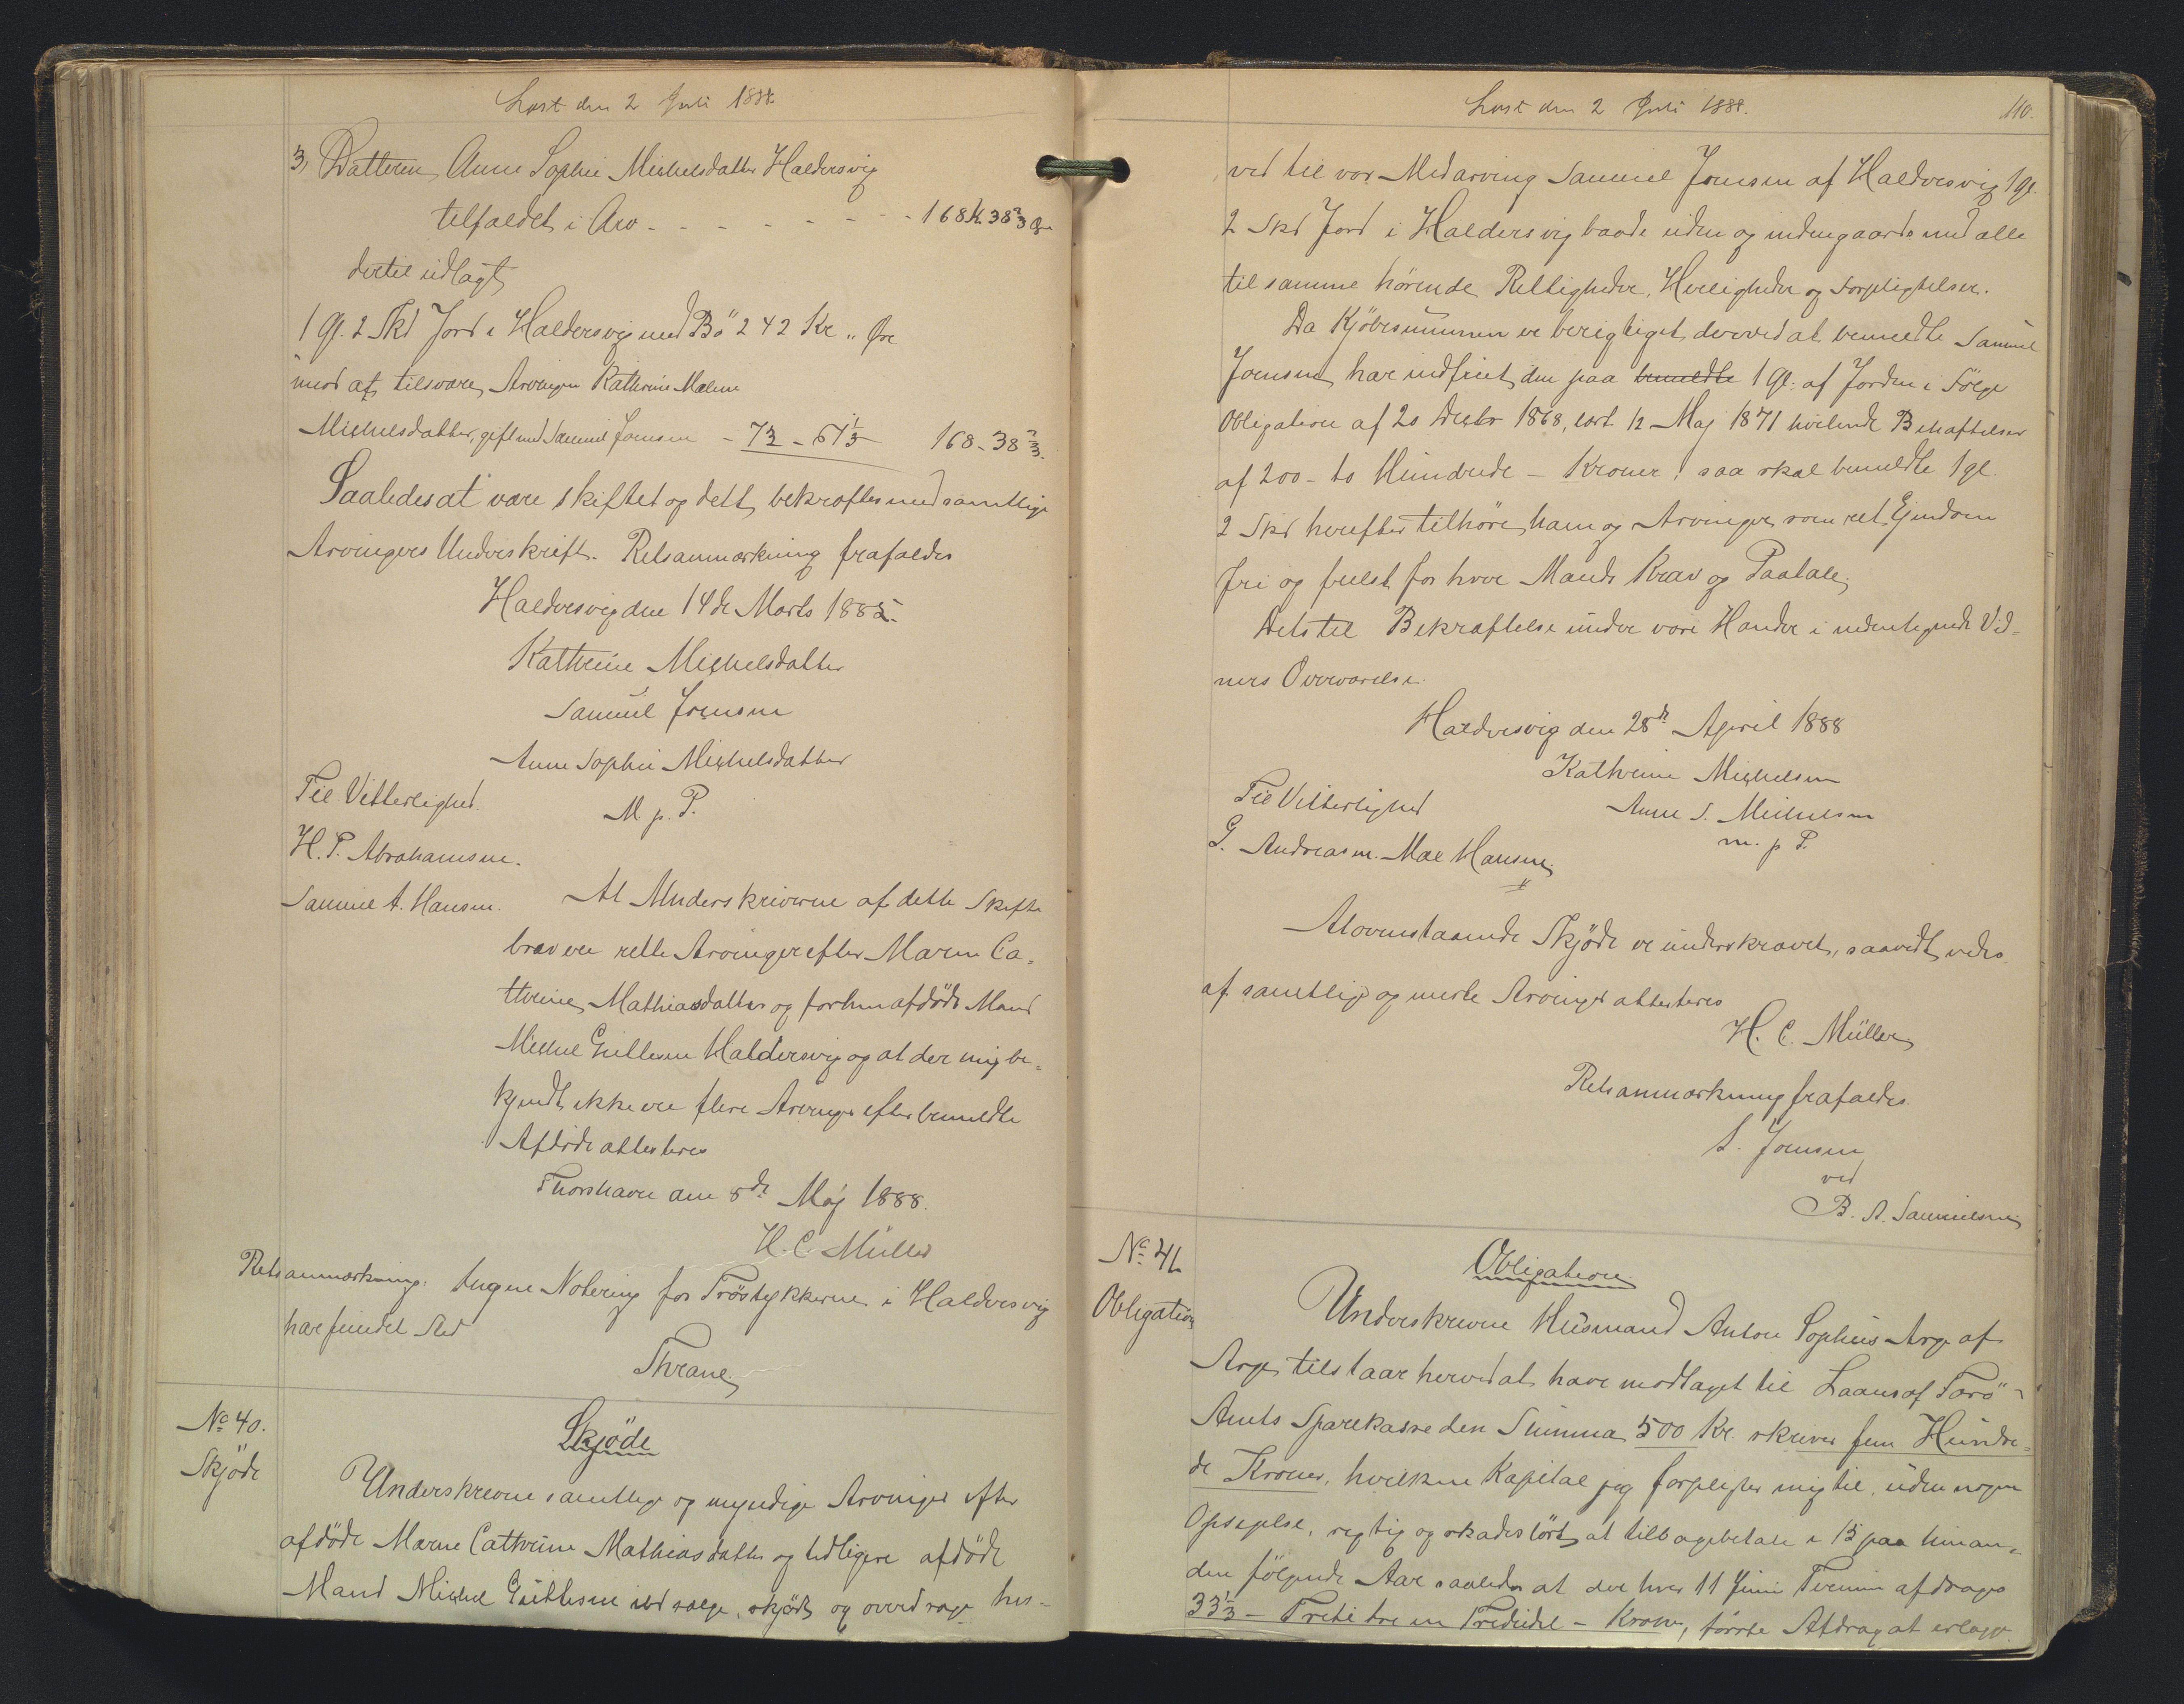 Læst den 2 Juli 1888.
3, Datteren Anne Sophie Michelsdatter Haldersvig
tilfaldet i Arv - - - - - - - 168 Kr 38 2/3 Ør
dertil udlagt
1 Gl. 2 Skd Jord i Haldersvig med Bö 242 Kr „ Øre
mod at tilsvare Arvingen Kathrine Malene
Michelsdatter, gift med Samuel Joensen - 73 - 61 1/3 168 - 38 2/3.
Saaledes at være skiftet og delt, bekræftes med samtlige
Arvingers Underskrift. Retsanmærkning frafaldes
Haldersvig den 14de Marts 1885.
Kathrine Michelsdatter
Samuel Joensen
Anne Sophie Michelsdatter
Til Vitterlighed. M. p. P.
H. P. Abrahamsen.
Samuel A. Hansen. At Underskriverne af dette Skifte
brev ere rette Arvinger efter Maren Ca-
thrine Mathiasdatter og forhen afdöde Mand
Michel Guttesen Haldersvig og at der mig be-
kjendt ikke ere flere Arvinger efter bemeldte
Afdöde attesteres
Thorshavn den 8de Maj 1888.
H. C. Müller
Retsanmærkning: Ingen Notering for Tröstykkerne i Haldersvig
har fundet Sted
Thrane
No 40.
Skjöde
Skjöde
Underskrevne samtlige og myndige Arvinger efter
afdöde Maren Cathrine Mathiasdatter og tidligere afdöde
Mand Michel Guttesen sælge, skjöde og overdrage her-
Læst den 2 Juli 1888. 110.
ved til vor Medarving Samuel Joensen af Haldersvig 1 Gl.
2 Skd Jord i Haldersvig baade uden og indengaards med alle
til samme hörende Rettigheder, Herligheder og Forpligtelser.
Da Kjöbesummen er berigtiget derved at bemeldte Samuel
Joensen har indfriet den paa bemeldte 1 Gl. af Jorden i Fölge
Obligation af 20 Decbr 1868, læst 12 Maj 1871 hvilende Behæftelse
af 200 - to Hundrede - Kroner, saa skal bemeldte 1 gl.
2 Skd herefter tilhöre ham og Arvinger som ret Ejendom
fri og frelst for hver Mands Krav og Paatale.
Dets til Bekræftelse under vore Hænder i undertegnede Vid-
ners Overværelse.
Haldersvig den 28de April 1888
Kathrine Michelsen
Til Vitterlighed Anne S. Michelsen
G. Andreasen. Mæl Hansen. m. p. P.
Atovenstaaende Skjöde er underskrevet, saavidt vides
af samtlige og myndige Arvinger attesteres
H. C. Müller
Retsanmærkning frafaldes
S. Joensen
ved
B. A. Samuelsen
No 41
Obligation
Obligation
Underskrevne Husmand Anton Sophus Arge af
Arge tilstaar herved at have modtaget til Laans af Færö
Amts Sparekasse den Summa 500 Kr. skriver fem Hundre-
de Kroner, hvilken Kapital jeg forpligter mig til, uden nogen
Opsigelse, rigtig og skadeslöst at tilbagebetale i 15 paa hinan-
den fölgende Aar saaledes at der hver 11 Juni Termin afdrages
33 1/3 - Treti tre en Trediedel - Kroner, förste Afdrag at erlægge